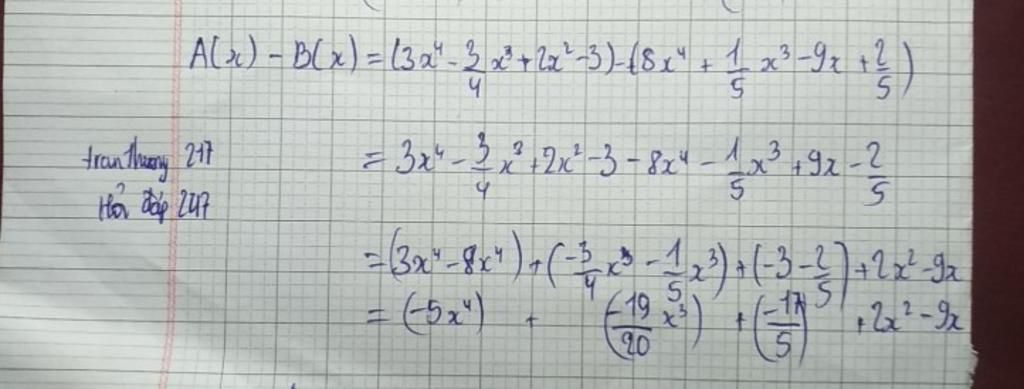 A(x) - B(x) = (3x⁴ - 3/4 x³ + 2x² - 3) - (8x⁴ + 1/5 x³ - 9x + 2/5)
tranthuong 217
= 3x⁴ - 3/4 x³ + 2x² - 3 - 8x⁴ - 1/5 x³ + 9x - 2/5
Hỏi đáp 247
= (3x⁴ - 8x⁴) + (-3/4 x³ - 1/5 x³) + (-3 - 2/5) + 2x² - 9x
= (-5x⁴) + (-19/20 x³) + (-17/5) + 2x² - 9x